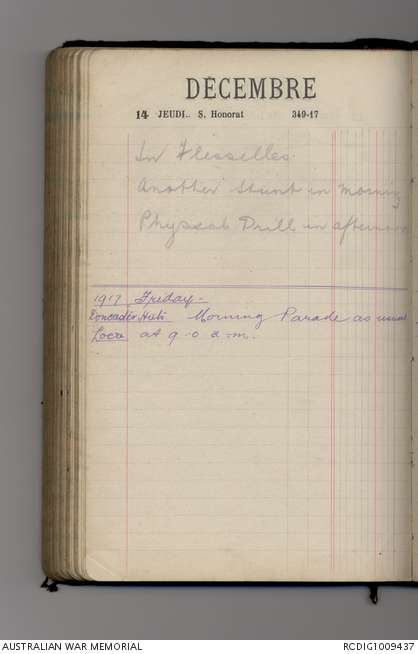 DÉCEMBRE
14 JEUDI.. S. Honorat 349-17
In Flesselles.
Another stunt in morning
Physcal Drill in afternoon
1917 Friday -
Huts Morning Parade as usual
Locre at 9.0 a.m.
AUSTRALIAN WAR MEMORIAL
RCDIG1009437